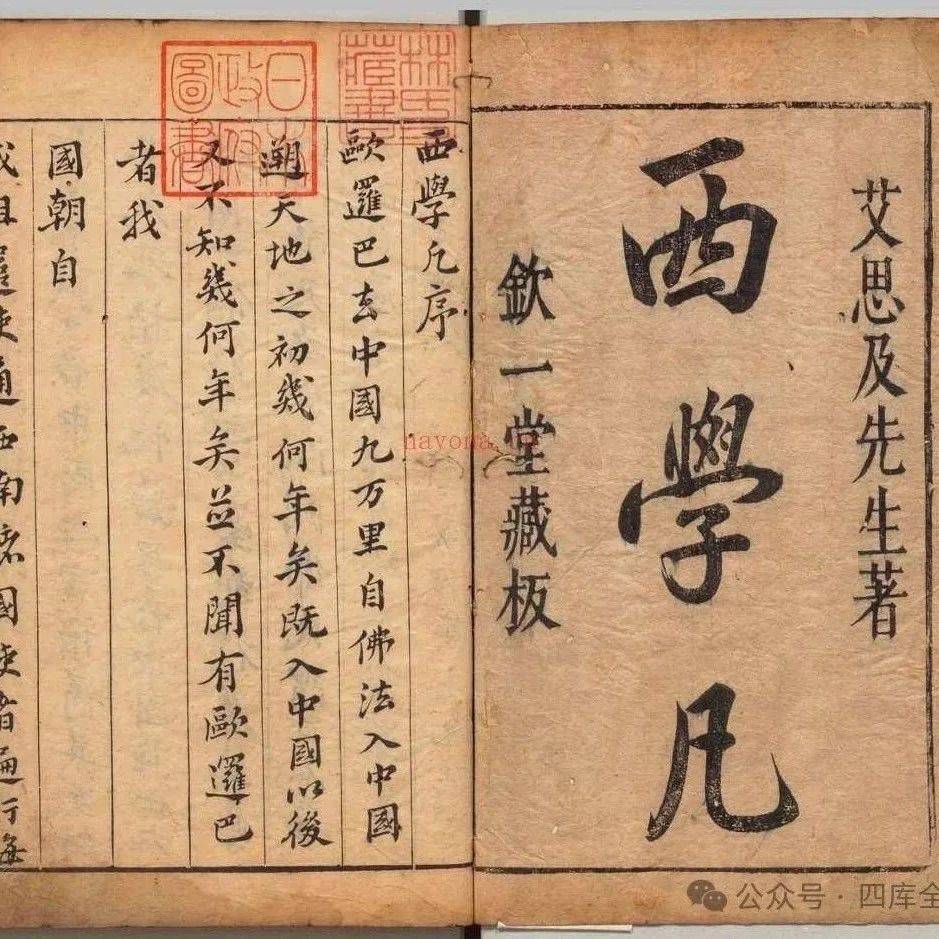 艾思及先生著
西學凡
欽一堂藏板
林氏藏書
日本政府圖書
西學凡序
歐邏巴去中國九万里自佛法入中國
遡天地之初幾何年矣既入中國以後
又不知幾何年矣並不聞有歐邏巴
者我
國朝自
成祖遣使通西南諸國使者遍行每
nayona
公众号·四库全